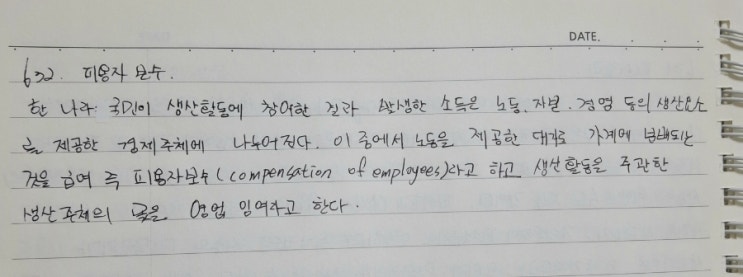 DATE.
632. 피용자 보수.
한 나라 국민이 생산활동에 참여한 결과 발생한 소득은 노동. 자본. 경영 등의 생산요소
를 제공한 경제주체에 나누어진다. 이 중에서 노동을 제공한 대가로 가계에 분배되는
것을 급여 즉 피용자보수(compensation of employees)라고 하고 생산활동을 주관한
생산주체의 몫을 영업 잉여라고 한다.